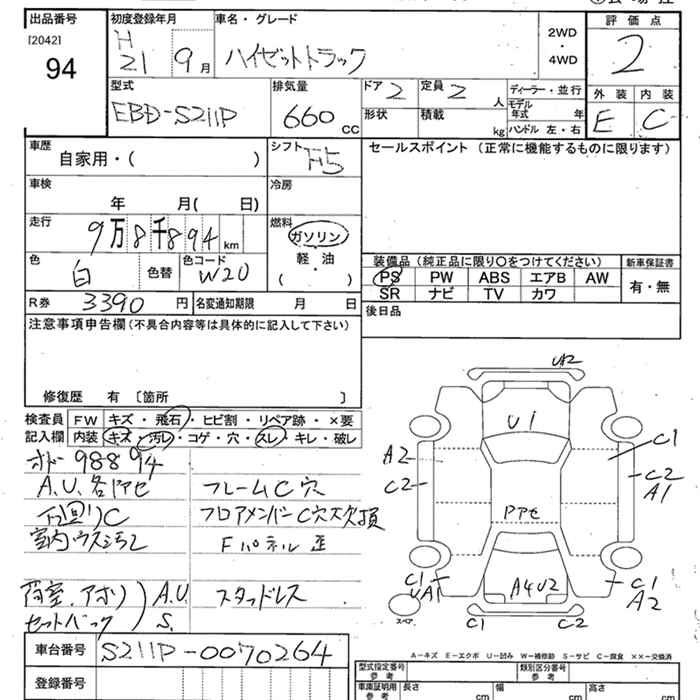 出品番号
[2042]
94
初度登録年月
H
21 9月
車名・グレード
ハイゼットトラック
2WD
・
4WD
評価点
2
外装 内装
E C
型式
EBD-S211P
排気量
660 cc
ドア 2
定員 2 人
ディーラー・並行
形状
積載 kg
モデル年式 年
ハンドル 左・右
車歴
自家用・( )
シフト
F5
セールスポイント (正常に機能するものに限ります)
車検
年 月( 日)
冷房
走行
9万8千894 km
燃料
ガソリン
軽・油
( )
色
白
色替
色コード
W20
装備品 (純正品に限り〇をつけてください)
新車保証書
PS PW ABS エアB AW
SR ナビ TV カワ
有・無
R券 3390円
名変通知期限 月 日
後日品
注意事項申告欄(不具合内容等は具体的に記入して下さい)
修復歴 有 [箇所 ]
検査員記入欄
FW キズ・飛石・ヒビ割・リペア跡・×要
内装 キズ・汚レ・コゲ・穴・スレ・キレ・破レ
98894
A.U.各ドアセ
下回リC
室内ウス汚レ
荷室.アオリ) A.U.
セットバック) S.
フレームC穴
フロアメンバーC穴大欠損
Fパネル歪
スタッドレス
UA2
U1
C1
A2
C2
C2
A1
Pアセ
C1
UA1
A4U2
C1
A2
スペア
C1
C2
A−キズ E−エクボ U−凹み W−補修跡 S−サビ C−腐食 ××−交換済
車台番号
S211P-0070264
登録番号
型式指定番号
参考
類別区分番号
参考
車庫証明用
参考
長さ cm
幅 cm
高さ cm